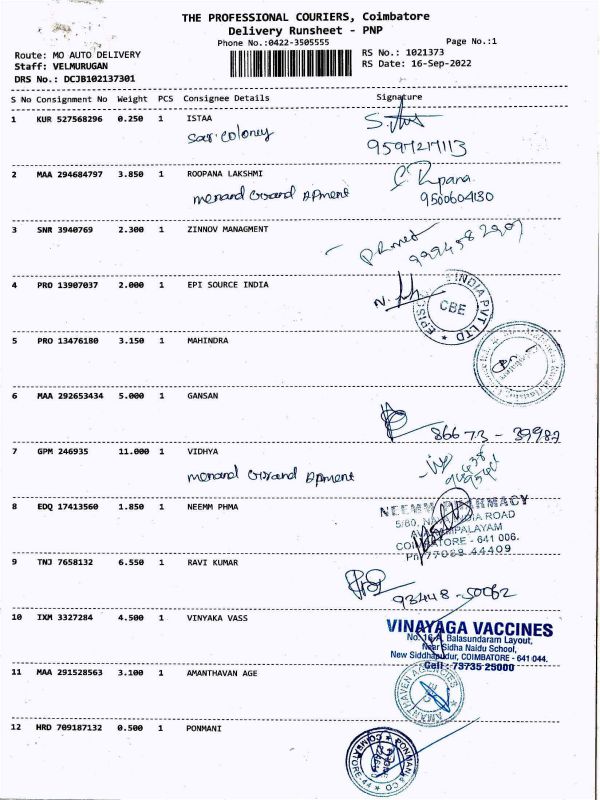 THE PROFESSIONAL COURIERS, Coimbatore
Delivery Runsheet - PNP
Phone No.:0422-3505555
Page No.:1
Route: MO AUTO DELIVERY
RS No.: 1021373
Staff: VELMURUGAN
RS Date: 16-Sep-2022
DRS No.: DCJB102137301
S No Consignment No Weight PCS Consignee Details Signature
1 KUR 527568296 0.250 1 ISTAA
sar colony
9597217113
2 MAA 294684797 3.850 1 ROOPANA LAKSHMI
menand Grand Apment
9500604130
3 SNR 3940769 2.300 1 ZINNOV MANAGMENT
4 PRO 13907037 2.000 1 EPI SOURCE INDIA
INDIA PVT LTD
CBE
5 PRO 13476180 3.150 1 MAHINDRA
6 MAA 292653434 5.000 1 GANSAN
86673-39982
7 GPM 246935 11.000 1 VIDHYA
menand Grand Apment
8 EDQ 17413560 1.850 1 NEEMM PHMA
NEEMM PHARMACY
ROAD
COIMBATORE - 641 006.
Ph: 77088 44409
9 TNJ 7658132 6.550 1 RAVI KUMAR
93448-50062
10 IXM 3327284 4.500 1 VINYAKA VASS
VINAYAGA VACCINES
No. 16-A, Balasundaram Layout,
Near Sidha Naidu School,
New Siddhapudur, COIMBATORE - 641 044.
Cell : 73735 25000
11 MAA 291528563 3.100 1 AMANTHAVAN AGE
AMANTHAVEN AGENCIES
12 HRD 709187132 0.500 1 PONMANI
PONMANI & CO
COIMBATORE-44